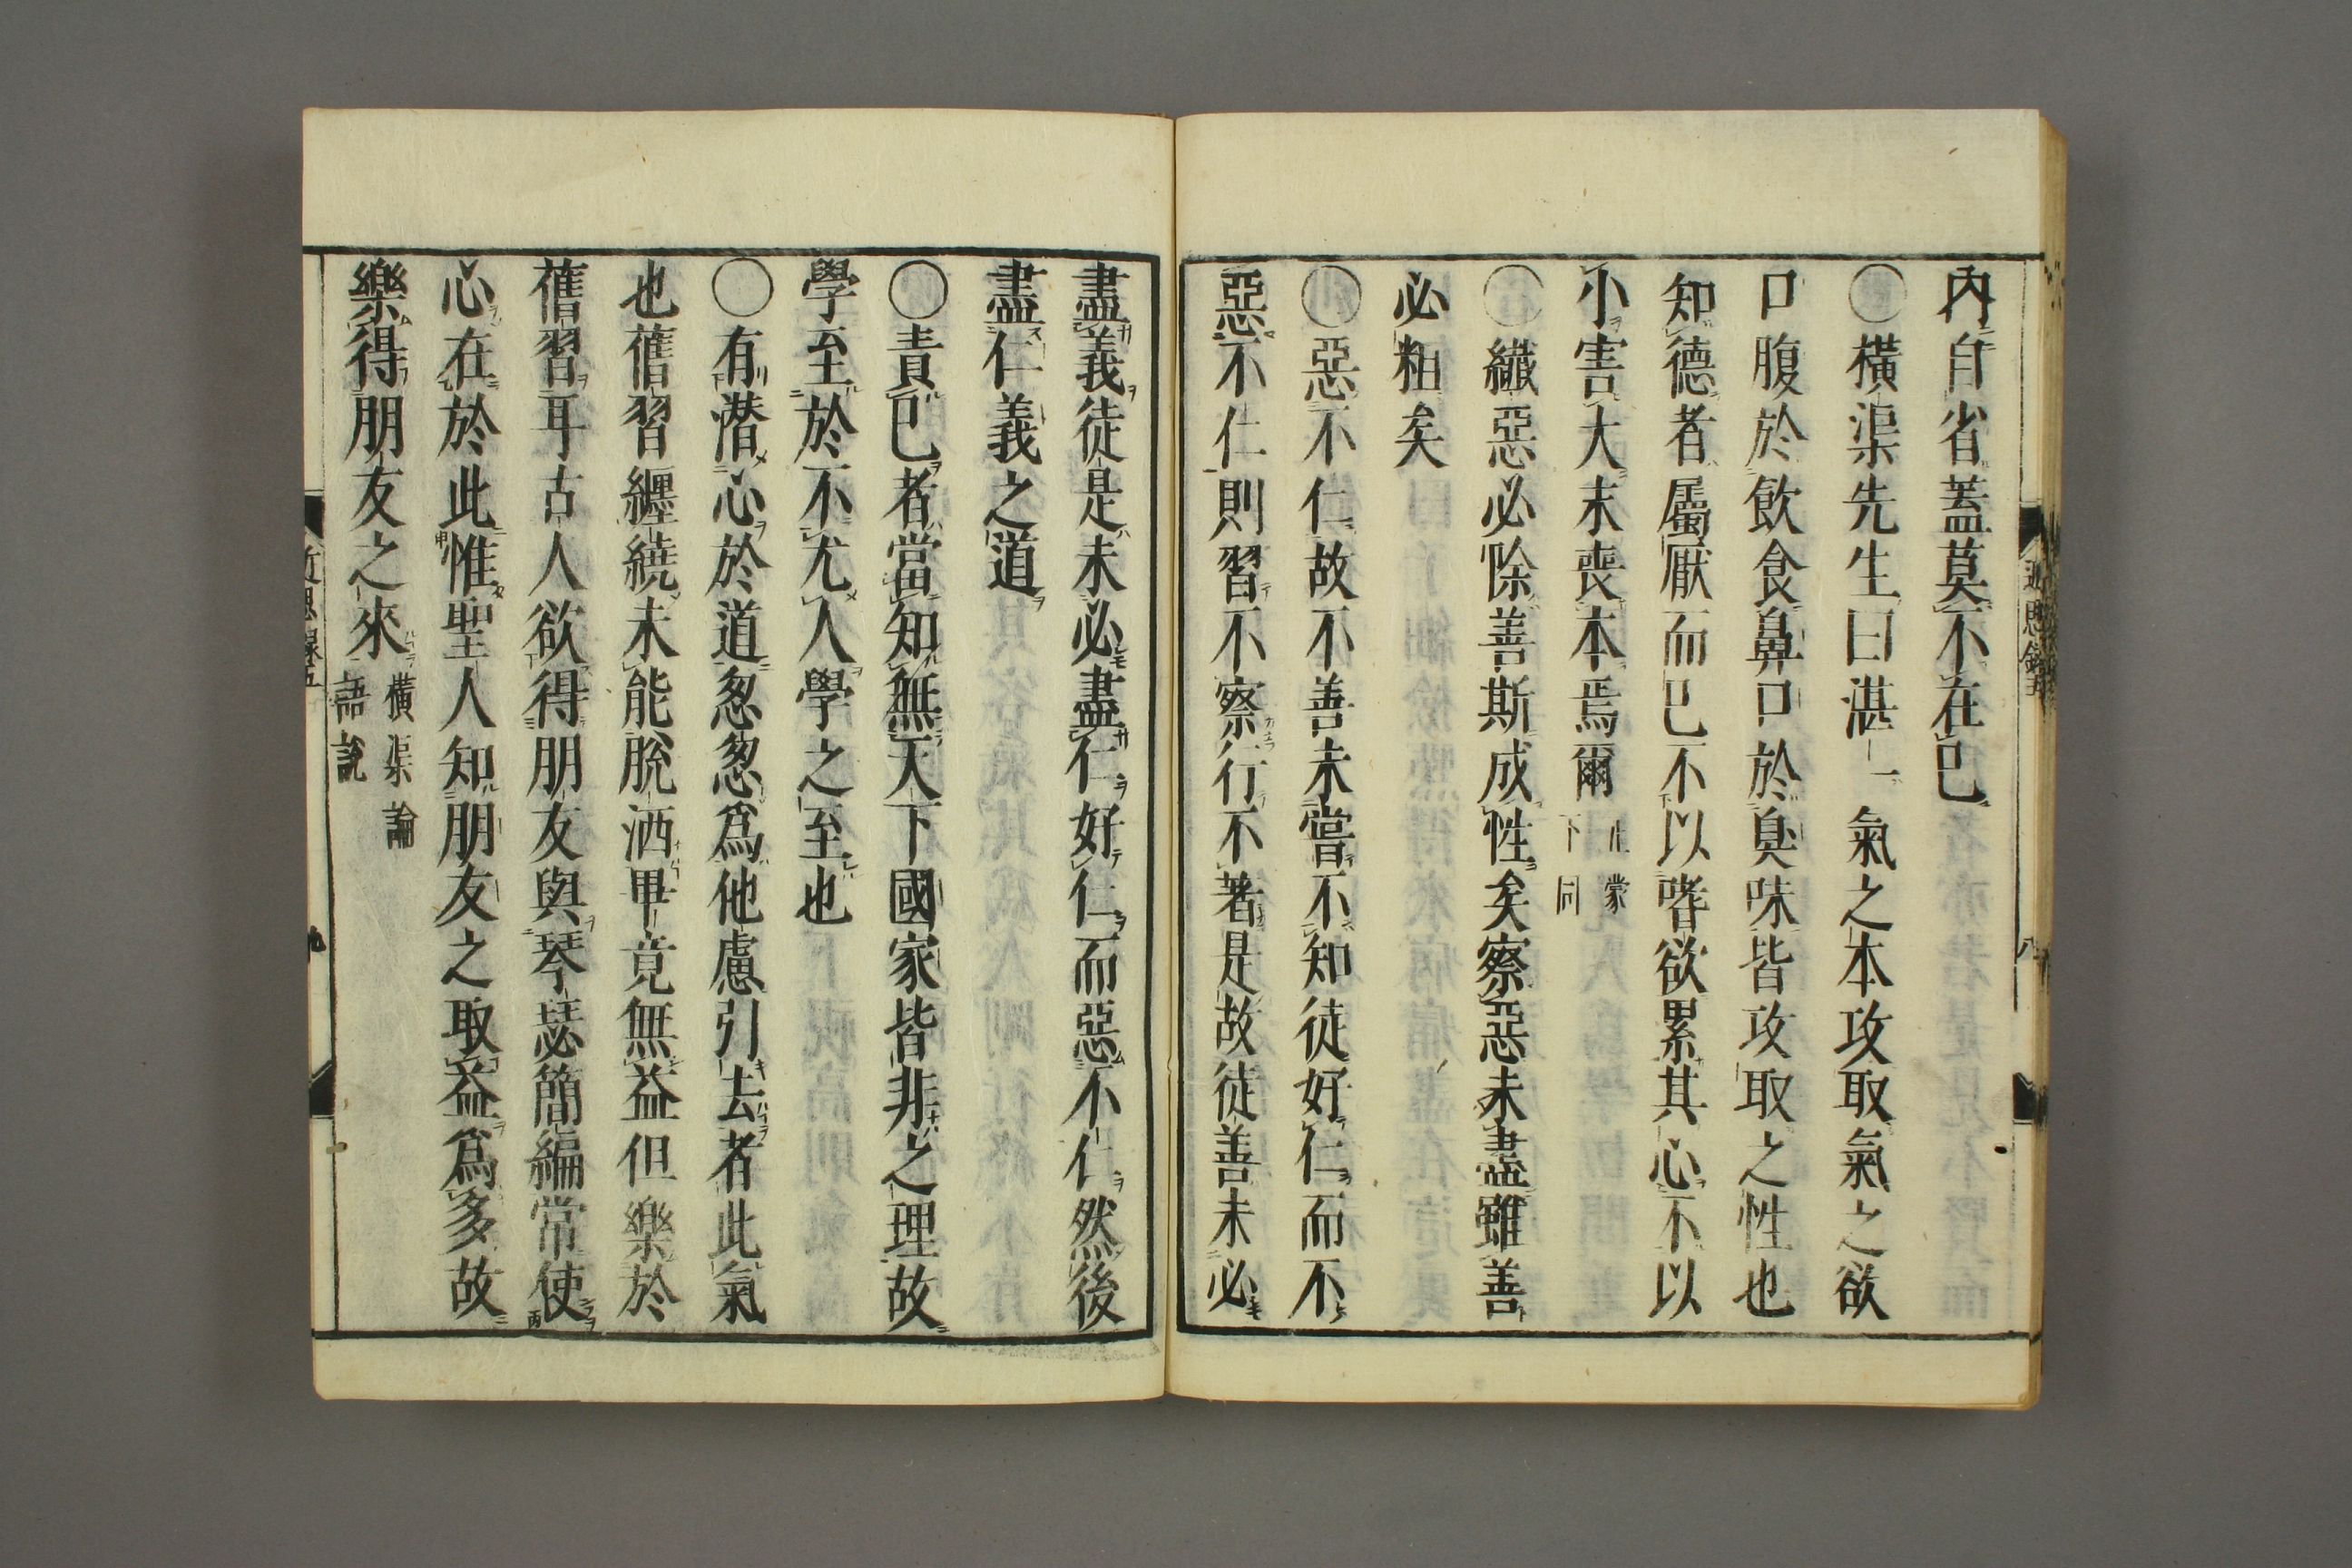 內自省蓋莫不在己
○橫渠先生曰湛一氣之本攻取氣之欲
口腹於飲食鼻口於臭味皆攻取之性也
知德者屬厭而已不以嗜欲累其心不以
小害大末喪本焉爾正蒙下同
○纖惡必除善斯成性矣察惡未盡雖善
必粗矣
○惡不仁故不善未嘗不知徒好仁而不
惡不仁則習不察行不著是故徒善未必
盡義徒是未必盡仁好仁而惡不仁然後
盡仁義之道
○責己者當知無天下國家皆非之理故
學至於不尤人學之至也
○有潜心於道忽忽爲他慮引去者此氣
也舊習纒繞未能脫洒畢竟無益但樂於
舊習耳古人欲得朋友與琴瑟簡編常使
心在於此惟聖人知朋友之取益爲多故
樂得朋友之來橫渠論語說
近思録五
八
近思録五
九